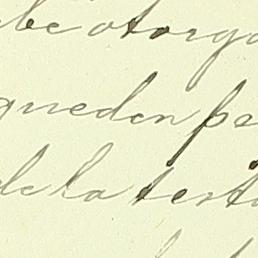 be otorga
queden pa
de la testa